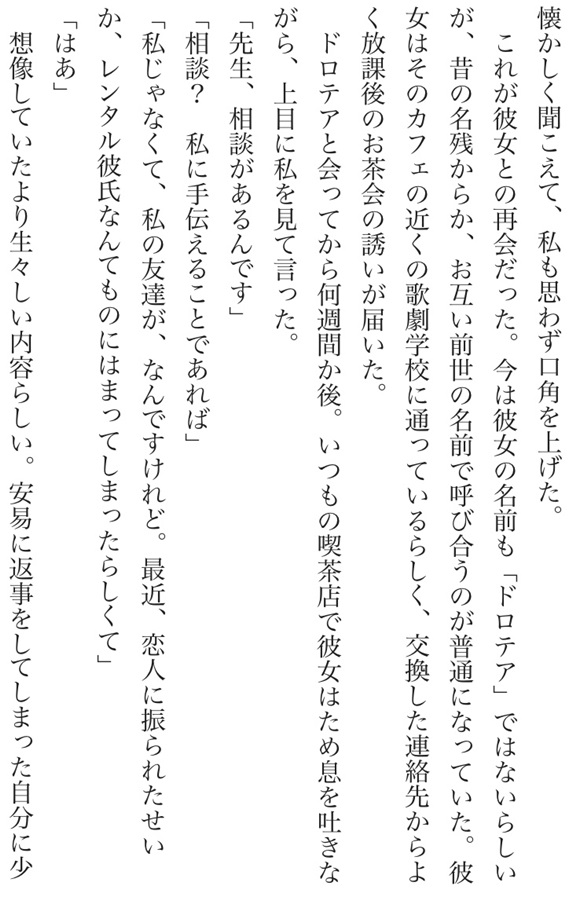 懐かしく聞こえて、私も思わず口角を上げた。
　これが彼女との再会だった。今は彼女の名前も「ドロテア」ではないらしい
が、昔の名残からか、お互い前世の名前で呼び合うのが普通になっていた。彼
女はそのカフェの近くの歌劇学校に通っているらしく、交換した連絡先からよ
く放課後のお茶会の誘いが届いた。
　ドロテアと会ってから何週間か後。いつもの喫茶店で彼女はため息を吐きな
がら、上目に私を見て言った。
「先生、相談があるんです」
「相談？　私に手伝えることであれば」
「私じゃなくて、私の友達が、なんですけれど。最近、恋人に振られたせい
か、レンタル彼氏なんてものにはまってしまったらしくて」
「はあ」
　想像していたより生々しい内容らしい。安易に返事をしてしまった自分に少